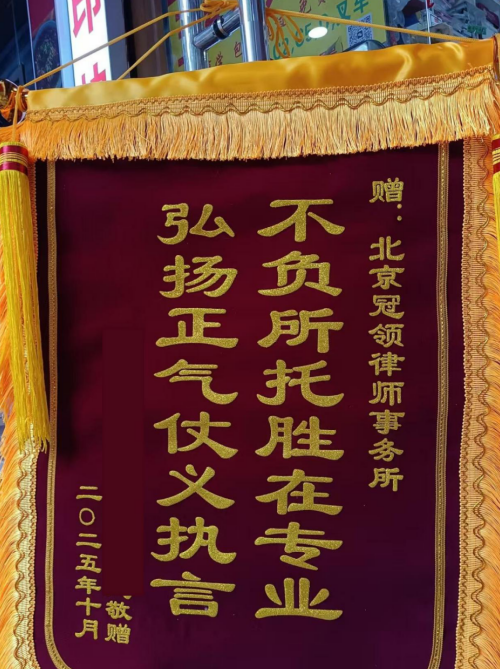 赠：北京冠领律师事务所
不负所托胜在专业
弘扬正气仗义执言
敬赠
二〇二五年十月